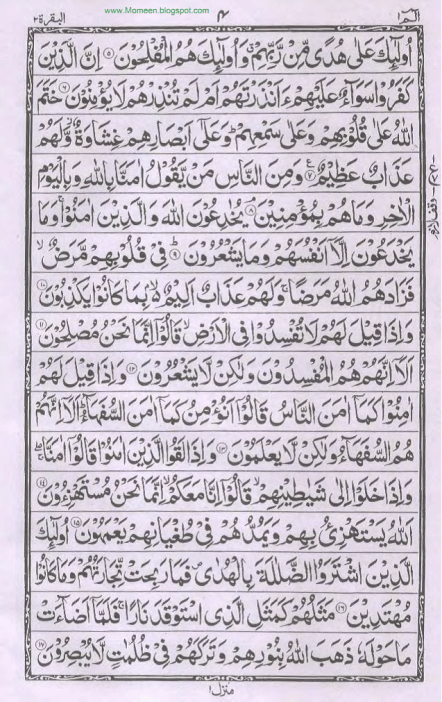 www.Momeen.blogspot.com
البقرة ٢
٤
الٓمّٓ ١
اُولٰٓئِكَ عَلٰى هُدًى مِّنْ رَّبِّهِمْ ۗ وَاُولٰٓئِكَ هُمُ الْمُفْلِحُوْنَ ۝٥ اِنَّ الَّذِيْنَ
كَفَرُوْا سَوَآءٌ عَلَيْهِمْ ءَاَنْذَرْتَهُمْ اَمْ لَمْ تُنْذِرْهُمْ لَا يُؤْمِنُوْنَ ۝٦ خَتَمَ
اللّٰهُ عَلٰى قُلُوْبِهِمْ وَعَلٰى سَمْعِهِمْ ؕ وَعَلٰٓى اَبْصَارِهِمْ غِشَاوَةٌ ؗ وَّلَهُمْ
عَذَابٌ عَظِيْمٌ ۝٧ وَمِنَ النَّاسِ مَنْ يَّقُوْلُ اٰمَنَّا بِاللّٰهِ وَبِالْيَوْمِ
الْاٰخِرِ وَمَا هُمْ بِمُؤْمِنِيْنَ ۝٨ يُخٰدِعُوْنَ اللّٰهَ وَالَّذِيْنَ اٰمَنُوْا ۚ وَمَا
يَخْدَعُوْنَ اِلَّآ اَنْفُسَهُمْ وَمَا يَشْعُرُوْنَ ۝٩ فِيْ قُلُوْبِهِمْ مَّرَضٌ ۙ
فَزَادَهُمُ اللّٰهُ مَرَضًا ۚ وَلَهُمْ عَذَابٌ اَلِيْمٌ ۙ بِمَا كَانُوْا يَكْذِبُوْنَ ۝١٠
وَاِذَا قِيْلَ لَهُمْ لَا تُفْسِدُوْا فِى الْاَرْضِ ۙ قَالُوْٓا اِنَّمَا نَحْنُ مُصْلِحُوْنَ ۝١١
اَلَآ اِنَّهُمْ هُمُ الْمُفْسِدُوْنَ وَلٰكِنْ لَّا يَشْعُرُوْنَ ۝١٢ وَاِذَا قِيْلَ لَهُمْ
اٰمِنُوْا كَمَآ اٰمَنَ النَّاسُ قَالُوْٓا اَنُؤْمِنُ كَمَآ اٰمَنَ السُّفَهَآءُ ؕ اَلَآ اِنَّهُمْ
هُمُ السُّفَهَآءُ وَلٰكِنْ لَّا يَعْلَمُوْنَ ۝١٣ وَاِذَا لَقُوا الَّذِيْنَ اٰمَنُوْا قَالُوْٓا اٰمَنَّا ۖۚ
وَاِذَا خَلَوْا اِلٰى شَيٰطِيْنِهِمْ ۙ قَالُوْٓا اِنَّا مَعَكُمْ ۙ اِنَّمَا نَحْنُ مُسْتَهْزِءُوْنَ ۝١٤
اَللّٰهُ يَسْتَهْزِئُ بِهِمْ وَيَمُدُّهُمْ فِيْ طُغْيَانِهِمْ يَعْمَهُوْنَ ۝١٥ اُولٰٓئِكَ
الَّذِيْنَ اشْتَرَوُا الضَّلٰلَةَ بِالْهُدٰى ۪ فَمَا رَبِحَتْ تِّجَارَتُهُمْ وَمَا كَانُوْا
مُهْتَدِيْنَ ۝١٦ مَثَلُهُمْ كَمَثَلِ الَّذِى اسْتَوْقَدَ نَارًا ۚ فَلَمَّآ اَضَآءَتْ
مَا حَوْلَهٗ ذَهَبَ اللّٰهُ بِنُوْرِهِمْ وَتَرَكَهُمْ فِيْ ظُلُمٰتٍ لَّا يُبْصِرُوْنَ ۝١٧
منزل ١